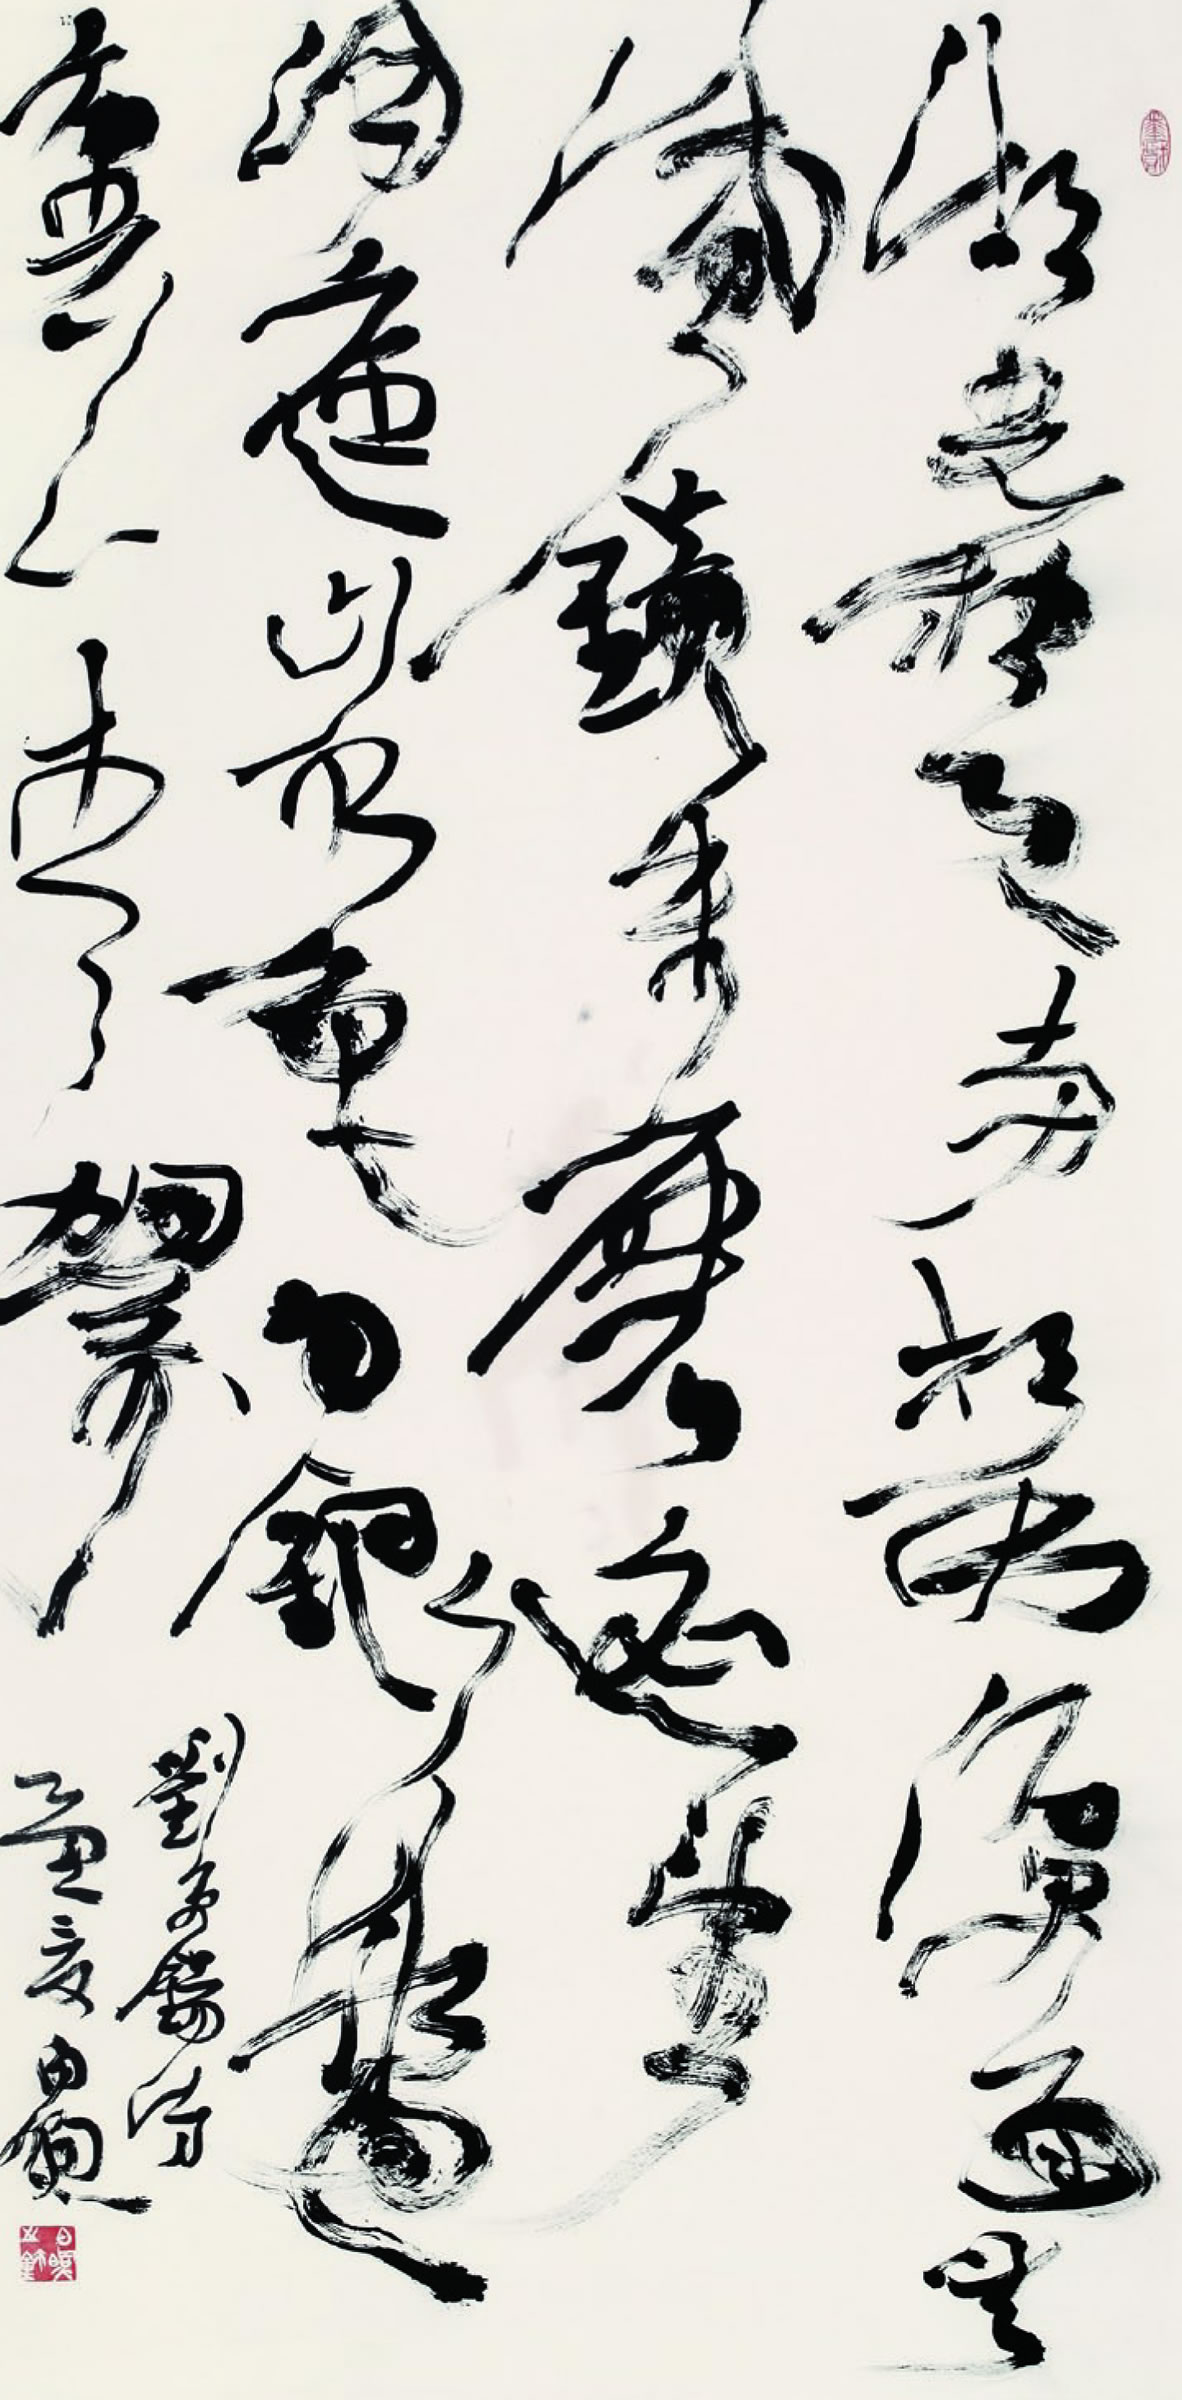 湖光秋月兩相和潭面無
風鏡未磨遙望
洞庭山水翠白銀盤
裏一青螺
劉禹錫詩
孟夏